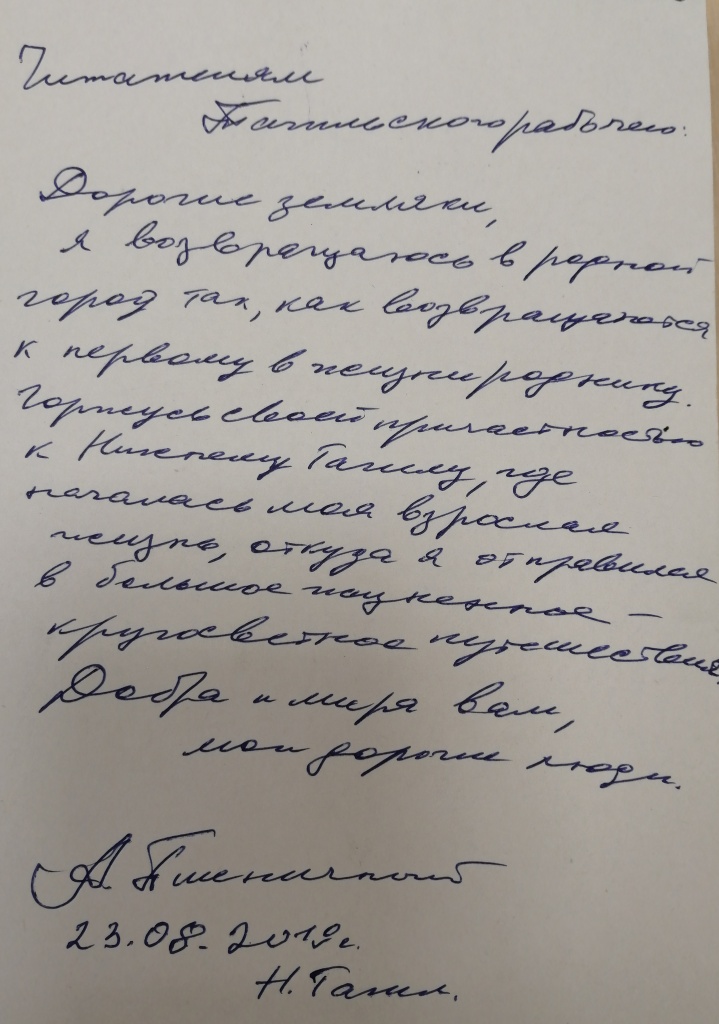 Читателям
Тагильского рабочего:
Дорогие земляки,
я возвращаюсь в родной
город так, как возвращаются
к первому в жизни роднику.
Горжусь своей причастностью
к Нижнему Тагилу, где
началась моя взрослая
жизнь, откуда я отправился
в большое жизненное –
кругосветное путешествие.
Добра и мира вам,
мои дорогие люди.
А. Пшеничный
23.08.2019г.
Н. Тагил.